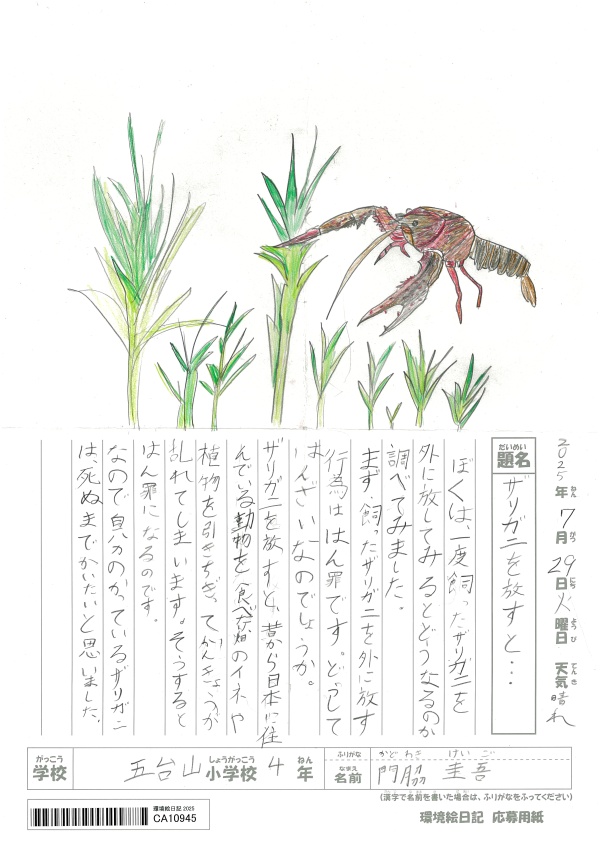 2025年7月29日火曜日 天気晴れ
ねん がつ にち ようび てんき
だいめい
題名 ザリガニを放すと…
ぼくは、一度飼ったザリガニを
外に放してみるとどうなるのか
調べてみました。
まず、飼ったザリガニを外に放す
行為ははん罪です。どうして
はんざいなのでしょうか。
ザリガニを放すと、昔から日本に住
んでいる動物を食べ、畑のイネや
植物を引きちぎってかんきょうが
乱れてしまいます。そうすると
はん罪になるのです。
なので自分のかっているザリガニ
は、死ぬまでかいたいと思いました。
がっこう しょうがっこう ねん ふりがな かどわき けいご
学校 五台山小学校 4年 なまえ 名前 門脇 圭吾
(漢字で名前を書いた場合は、ふりがなをふってください)
環境絵日記 2025
CA10945
環境絵日記 応募用紙